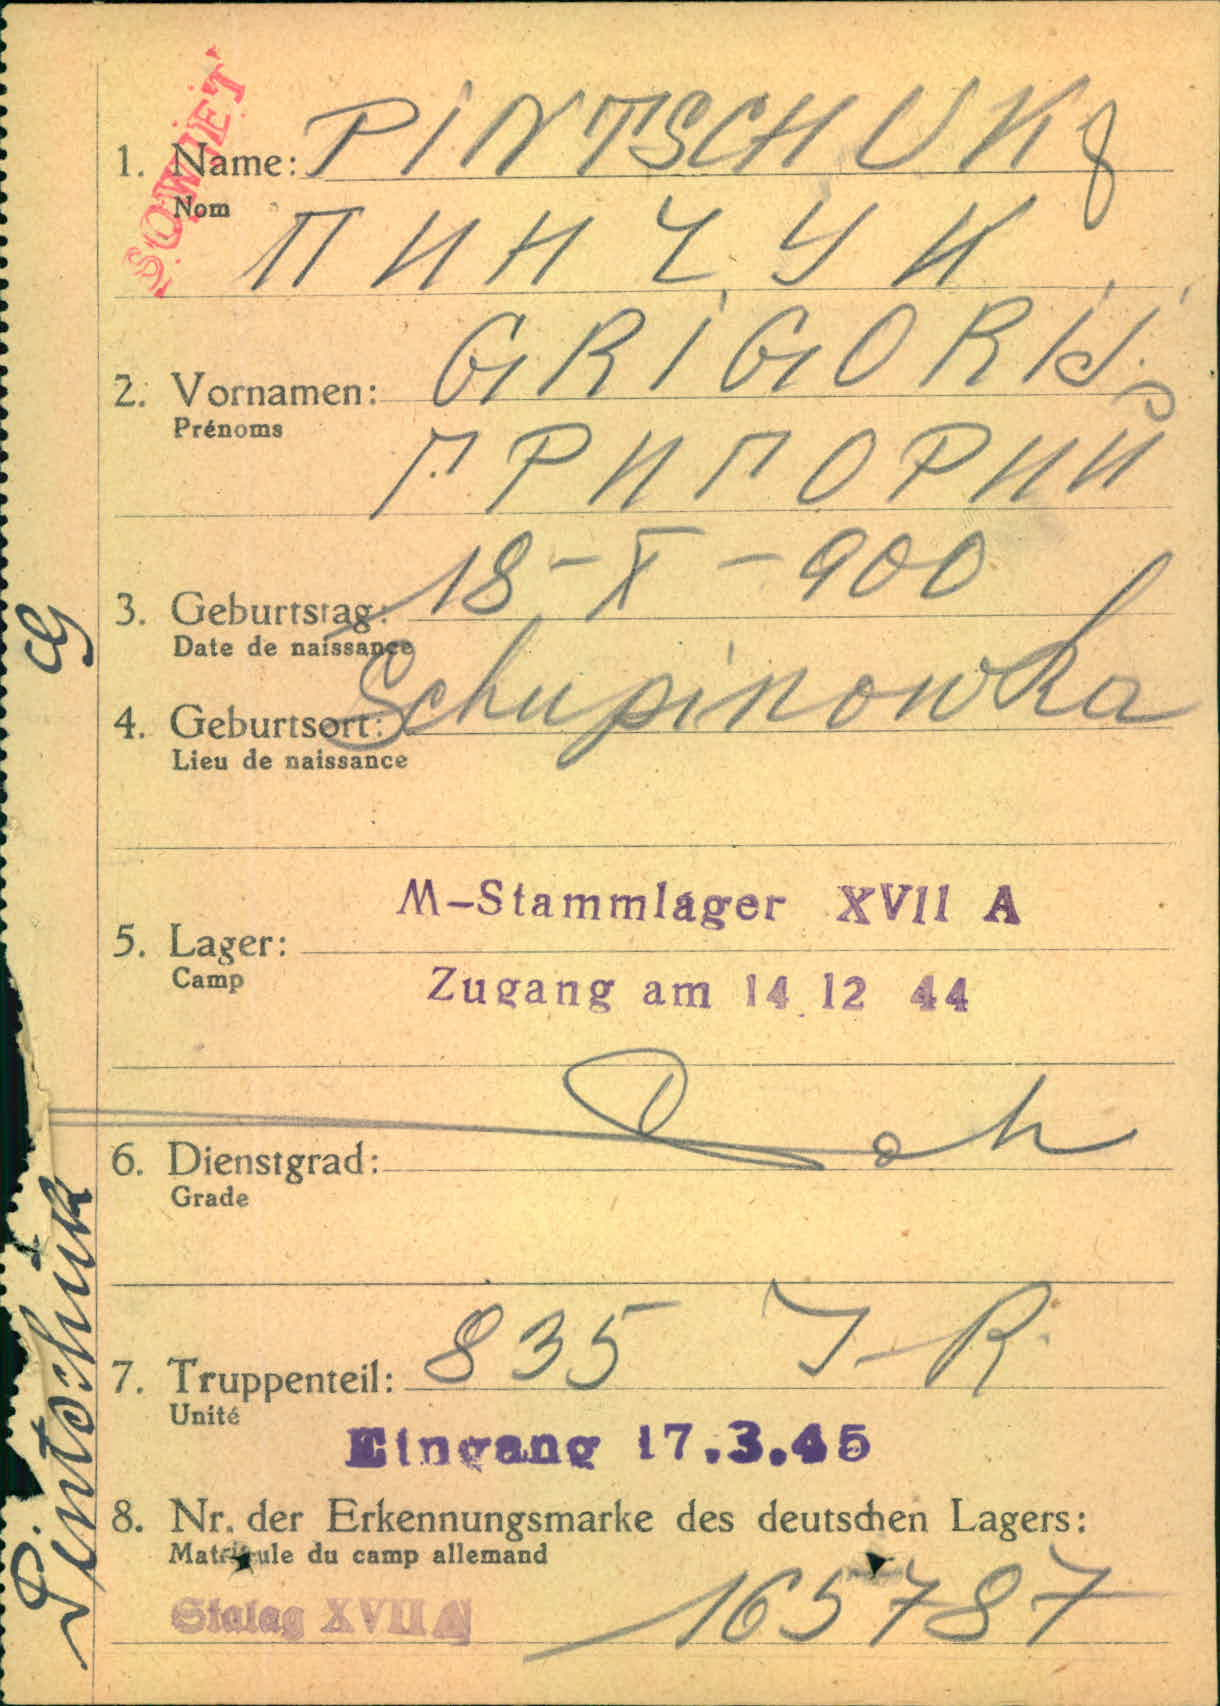 SOWJET
1. Name: PINTSCHUK
Nom
ПИНЧУК
2. Vornamen: GRIGORIJ
Prénoms
ГРИГОРИЙ
3. Geburtstag: 18-X-900
Date de naissance
4. Geburtsort: Schupinowka
Lieu de naissance
M-Stammlager XVII A
5. Lager:
Camp
Zugang am 14 12 44
6. Dienstgrad:
Grade
7. Truppenteil: 835 I-R.
Unité
Eingang 17.3.45
8. Nr. der Erkennungsmarke des deutschen Lagers:
Matricule du camp allemand
Stalag XVII A
165787
Pintschuk